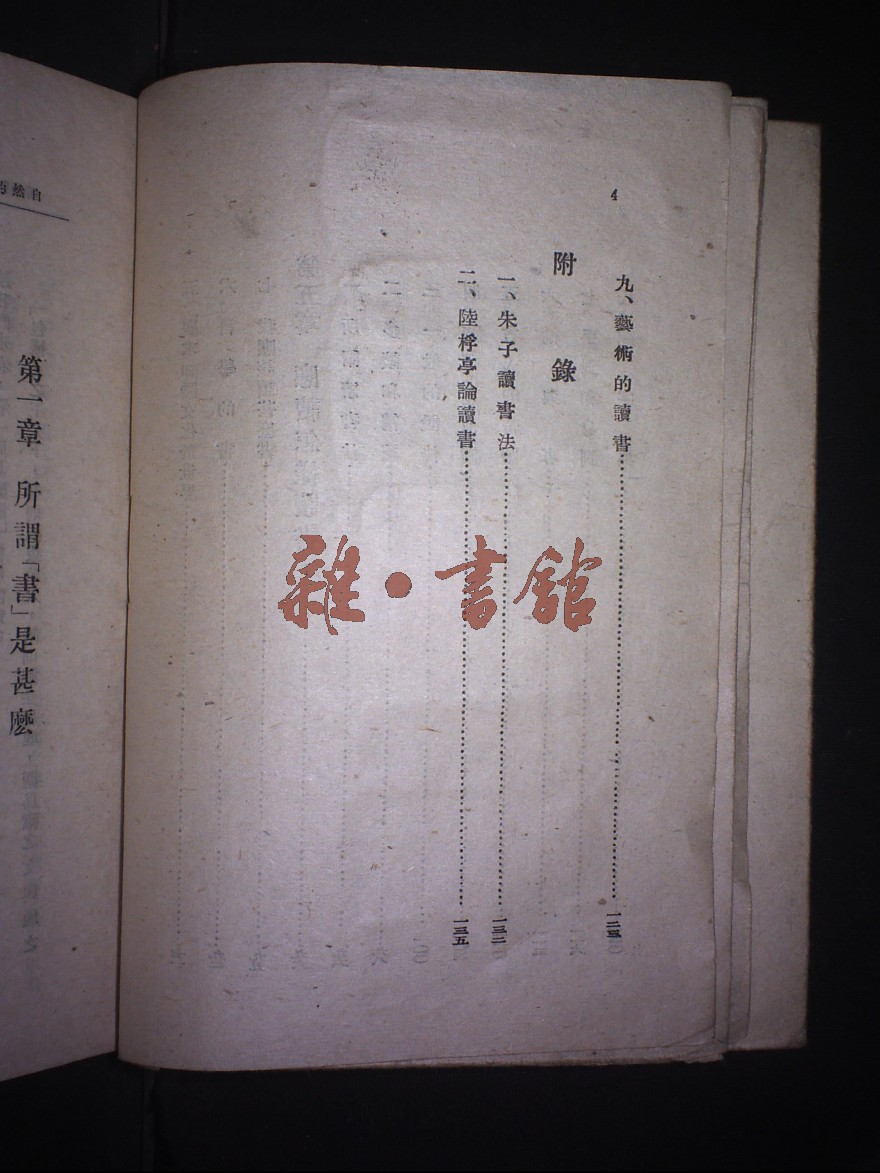 4
九、藝術的讀書
附錄
一、朱子讀書法……一三二
二、陸桴亭論讀書……一三五
雜·書館
自然
第一章 所謂「書」是甚麼